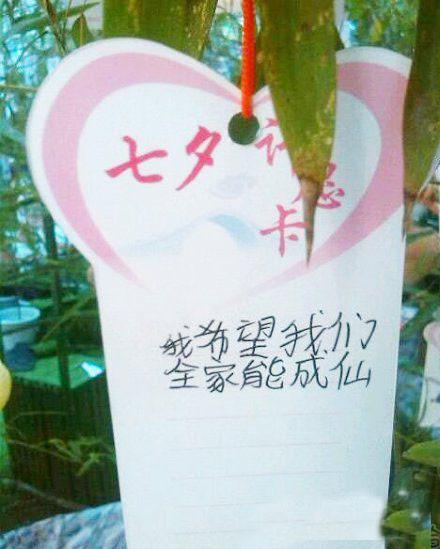 七夕许愿卡
我希望我们
全家能成仙